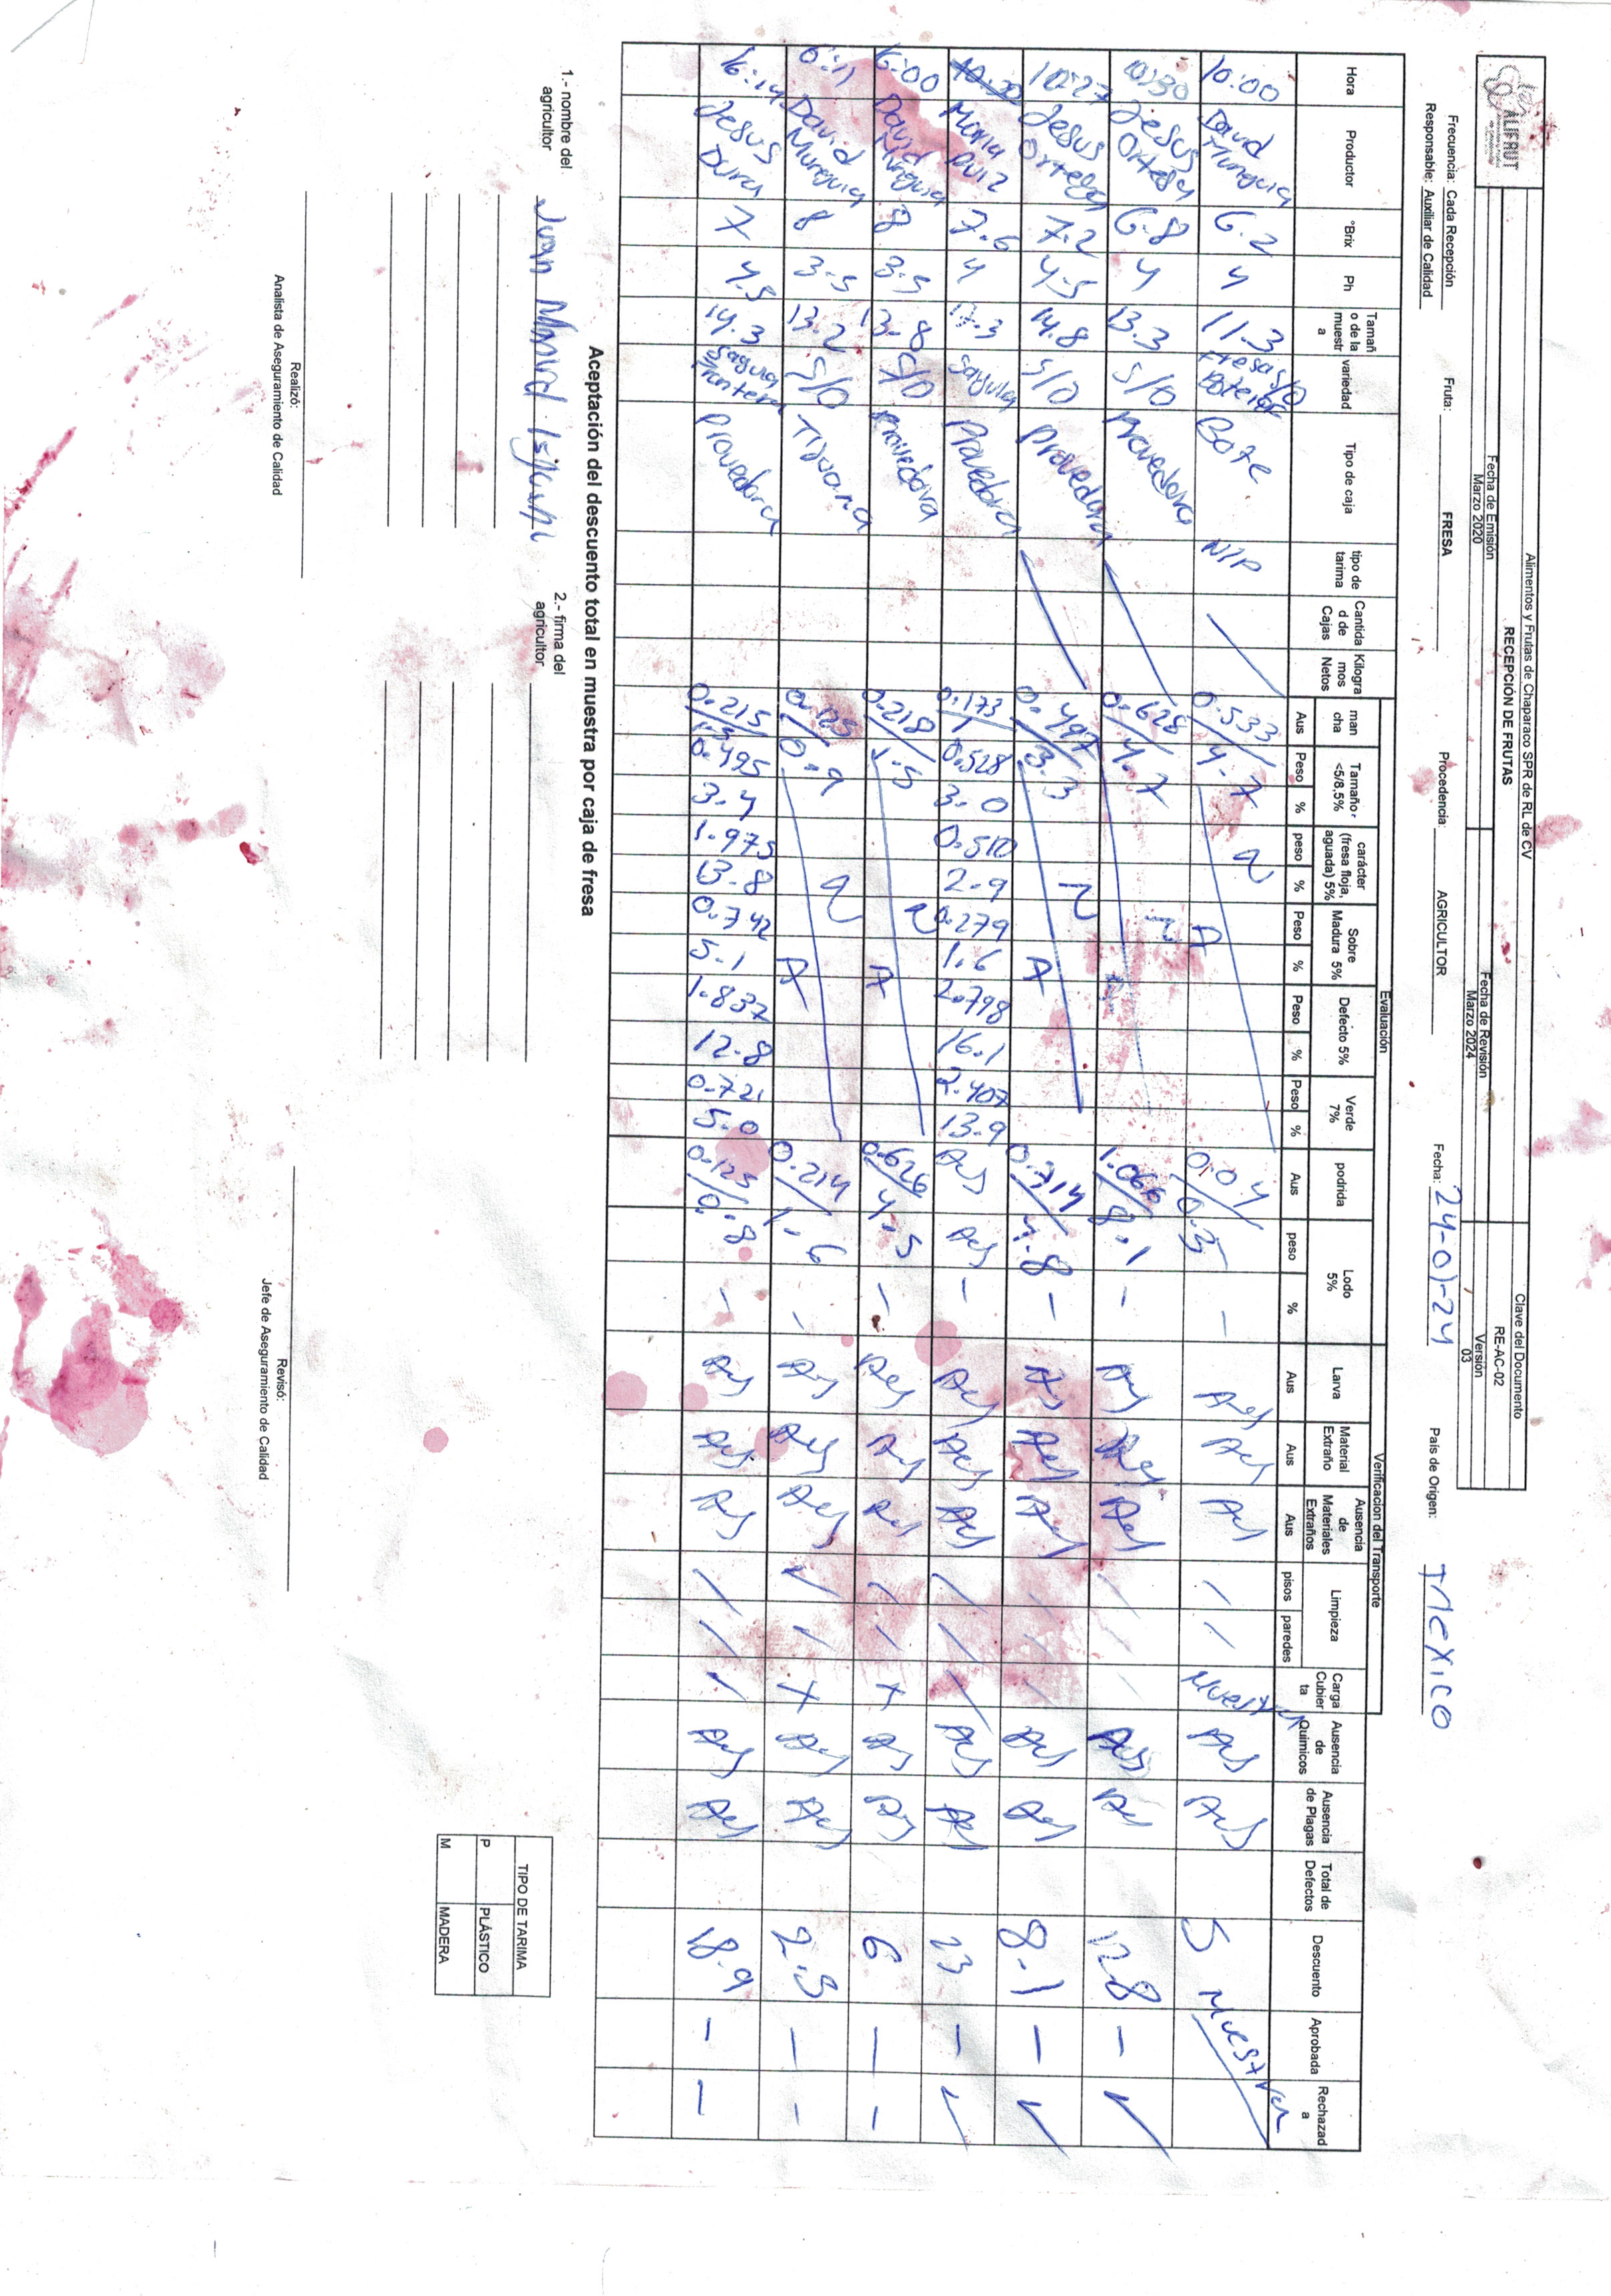 ALIFRUT
Alimentos y Frutas de Chaparaco SPR de RL de CV
RECEPCIÓN DE FRUTAS
Fecha de Emisión
Marzo 2020
Fecha de Revisión
Marzo 2024
Clave del Documento
RE-AC-02
Versión
03
Frecuencia: Cada Recepción
Responsable: Auxiliar de Calidad
Fruta: FRESA
Procedencia: AGRICULTOR
Fecha: 24-01-24
País de Origen: MEXICO
Evaluación
Verificacion del Transporte
Hora Productor °Brix Ph Tamaño de la muestra variedad Tipo de caja tipo de tarima Cantidad de Cajas Kilogramos Netos mancha Tamaño <5/8,5% carácter (fresa floja, aguada) 5% Sobre Madura 5% Defecto 5% Verde 7% podrida Lodo 5% Larva Material Extraño Ausencia de Materiales Extraños Limpieza Carga Cubierta Ausencia de Quimicos Ausencia de Plagas Total de Defectos Descuento Aprobada Rechazada
Aus Peso % peso % Peso % Peso % Peso % Aus peso % Aus Aus Aus pisos paredes
10:00 David Munguia 6.2 4 11.3 Fresa S/O Bote N/P 0.533 4.7 N A 0.04 0.3 - Aus Aus Aus Muestra Aus Aus 5 Muestra
10:30 Jesus Ortega 6.8 4 13.3 S/O Provedora 0.628 4.7 N A 1.066 8.1 - Aus Aus Aus Aus Aus 12.8 - ✓
10:27 Jesus Ortega 7.2 4.5 14.8 S/O Provedora 0.497 3.3 N A 0.714 4.8 - Aus Aus Aus Aus Aus 8.1 - ✓
Maria Ruiz 7.6 4 17.3 Sayula Provedora 0.173 1 0.528 3.0 0.510 2.9 0.279 1.6 2.798 16.1 2.407 13.9 Aus Aus - Aus Aus Aus Aus Aus 23 - ✓
16:00 David Munguia 8 3.5 13.8 S/O Provedora 0.218 1.5 N A 0.626 4.5 - Aus Aus Aus x Aus Aus 6 - -
David Munguia 8 3.5 13.2 S/O Tijuana 0.125 0.9 N A 0.214 1.6 - Aus Aus Aus ✓ x Aus Aus 2.5 - -
16:14 Jesus Duran 7 4.5 14.3 Sayula Frontera Provedora 0.215 1.5 0.495 3.4 1.975 13.8 0.742 5.1 1.837 12.8 0.721 5.0 0.125 0.8 - Aus Aus Aus Aus Aus 18.9 - -
Aceptación del descuento total en muestra por caja de fresa
1.- nombre del agricultor Juan
2.- firma del agricultor
TIPO DE TARIMA
P PLÁSTICO
M MADERA
Realizó:
Analista de Aseguramiento de Calidad
Revisó:
Jefe de Aseguramiento de Calidad